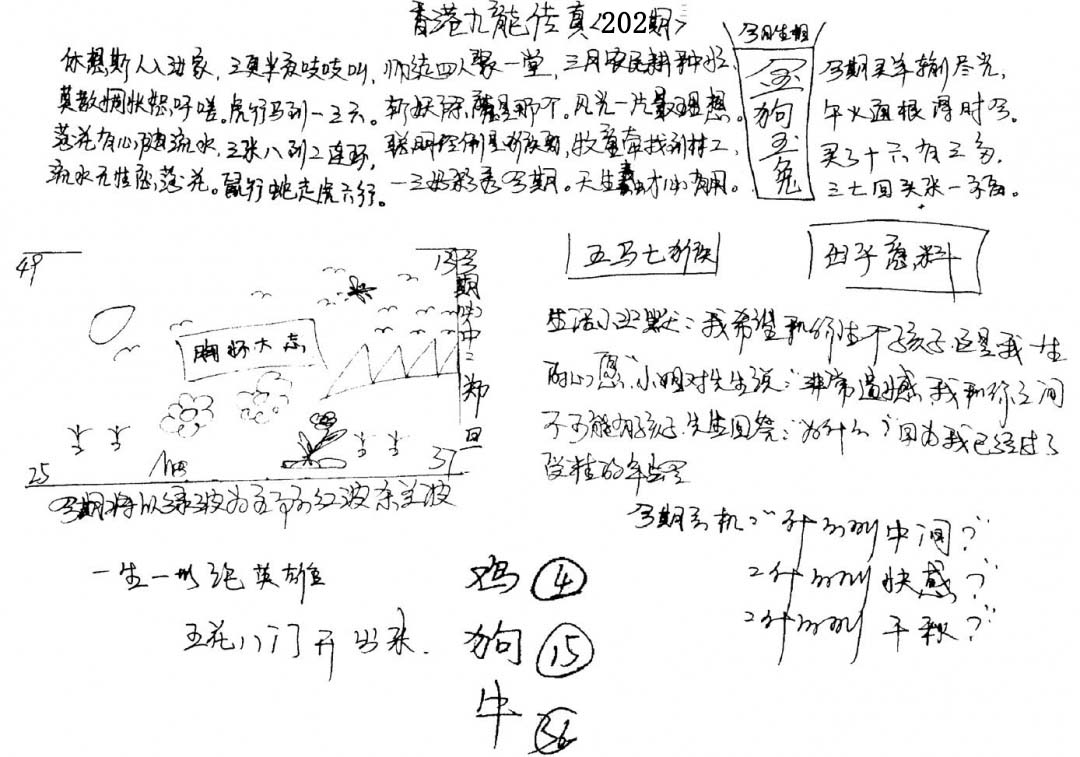 香港九龍传真<202期>
今期生肖
休想斯人入边家，三更半夜吱吱叫，师徒四人聚一堂，三月农民耕种忙，
莫散惆怅想吁嗟。虎行马到一三六。斩妖除魔是那个。风光一片最理想。
落花有心随流水，三张八到二连码，聪明控制是猴哥，牧童牵找到村工，
流水无性恋落花。鼠行蛇走虎六行。一三出彩透今期。天生蠢才小有用。
金
狗
玉
兔
今期买羊输尽光，
午火通根得时今。
买了十六有三多，
三七回头张一看。
五马七猴
田子急料
49
13
今期
中
二
郑
旦
胸怀大志
25
37
今期特以绿波为主
红波
生活小幽默：我希望和你生个孩子这是我一生
的心愿，小姐对先生说：非常遗憾，我和你之间
不可能有孩子，先生回答：为什么？因为我已经过了
受精的年
今期玄机：什么叫中间？
2什么叫快感？
2什么叫千秋？
一生一世绝英雄
五花八门开出来.
鸡 4
狗 15
牛 36